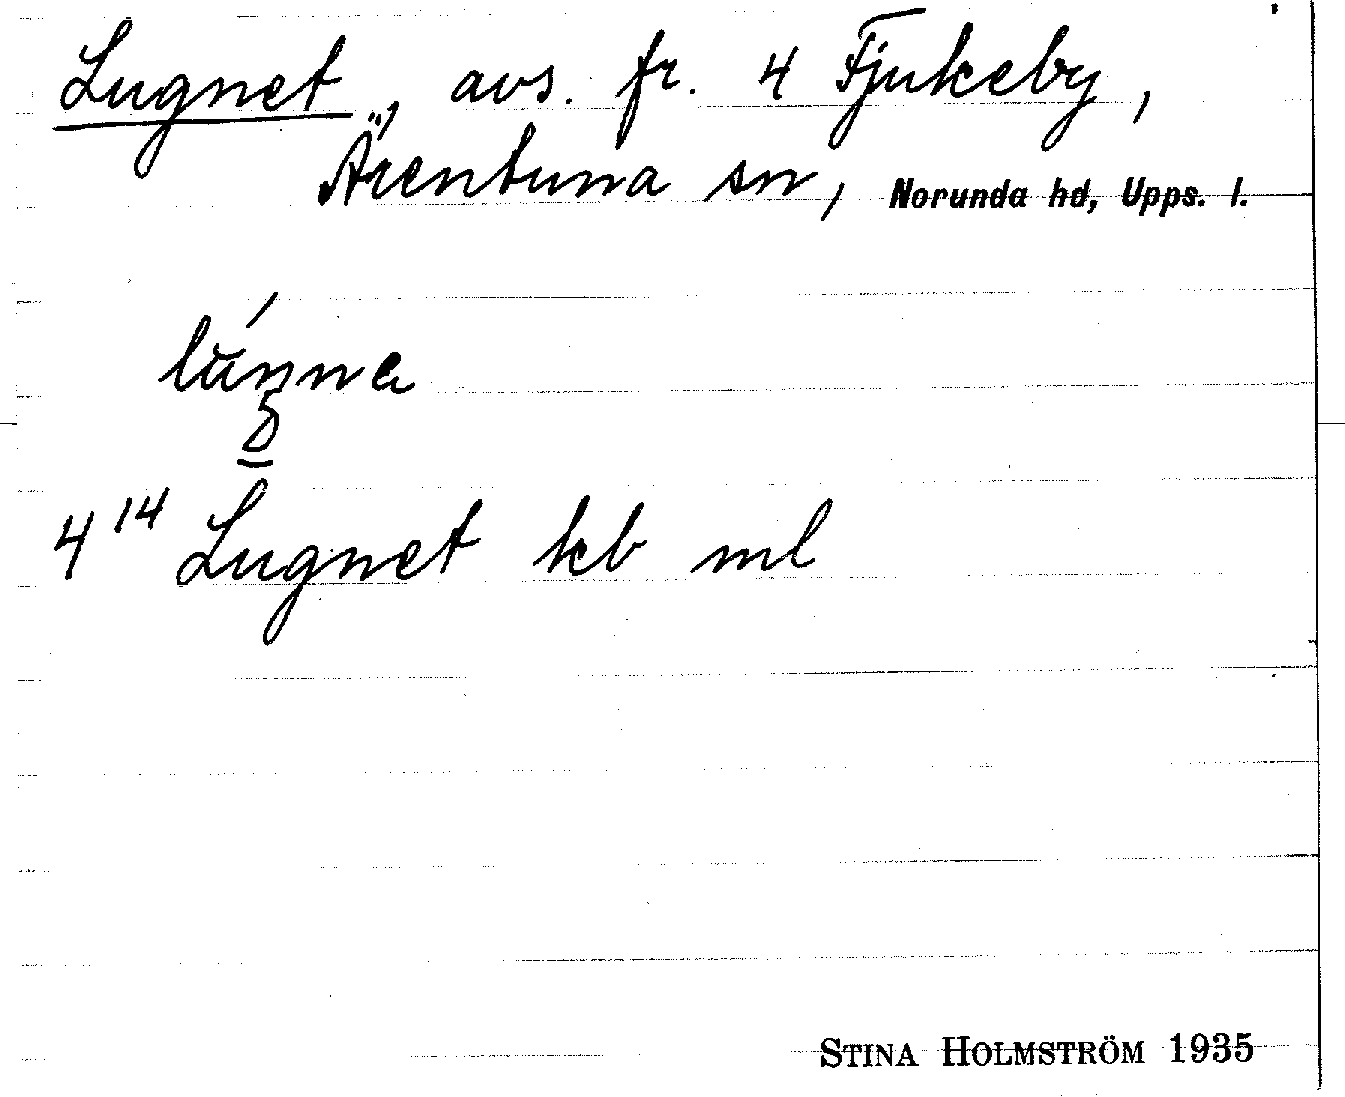 Lugnet, avs. fr. 4 Fjukeby,
Ärentuna sn, Norunda hd, Upps. l.
4 14 Lugnet kb ml
STINA HOLMSTRÖM 1935